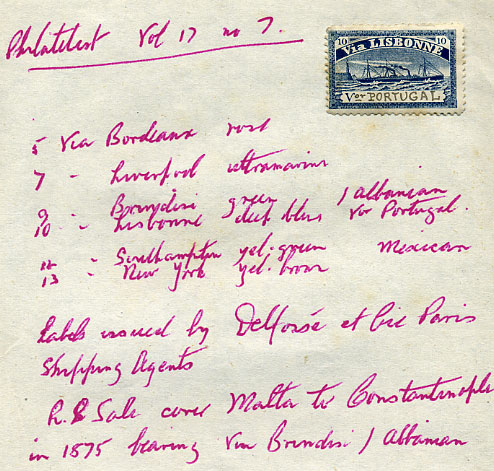 Philatelist Vol 17 no 7.
10 Via LISBONNE 10
Vor PORTUGAL
5 Via Bordeaux rose
7 " Liverpool ultramarine
9 " Brindisi green / Albanian
10 " Lisbonne deep blue Vor Portugal.
12 " Southampton yel. green Mexican
13 " New York yel. brown
Labels issued by Delfossé et Cie Paris
Shipping Agents
H.R. Sale cover Malta to Constantinople
in 1875 bearing Via Brindisi / Albanian